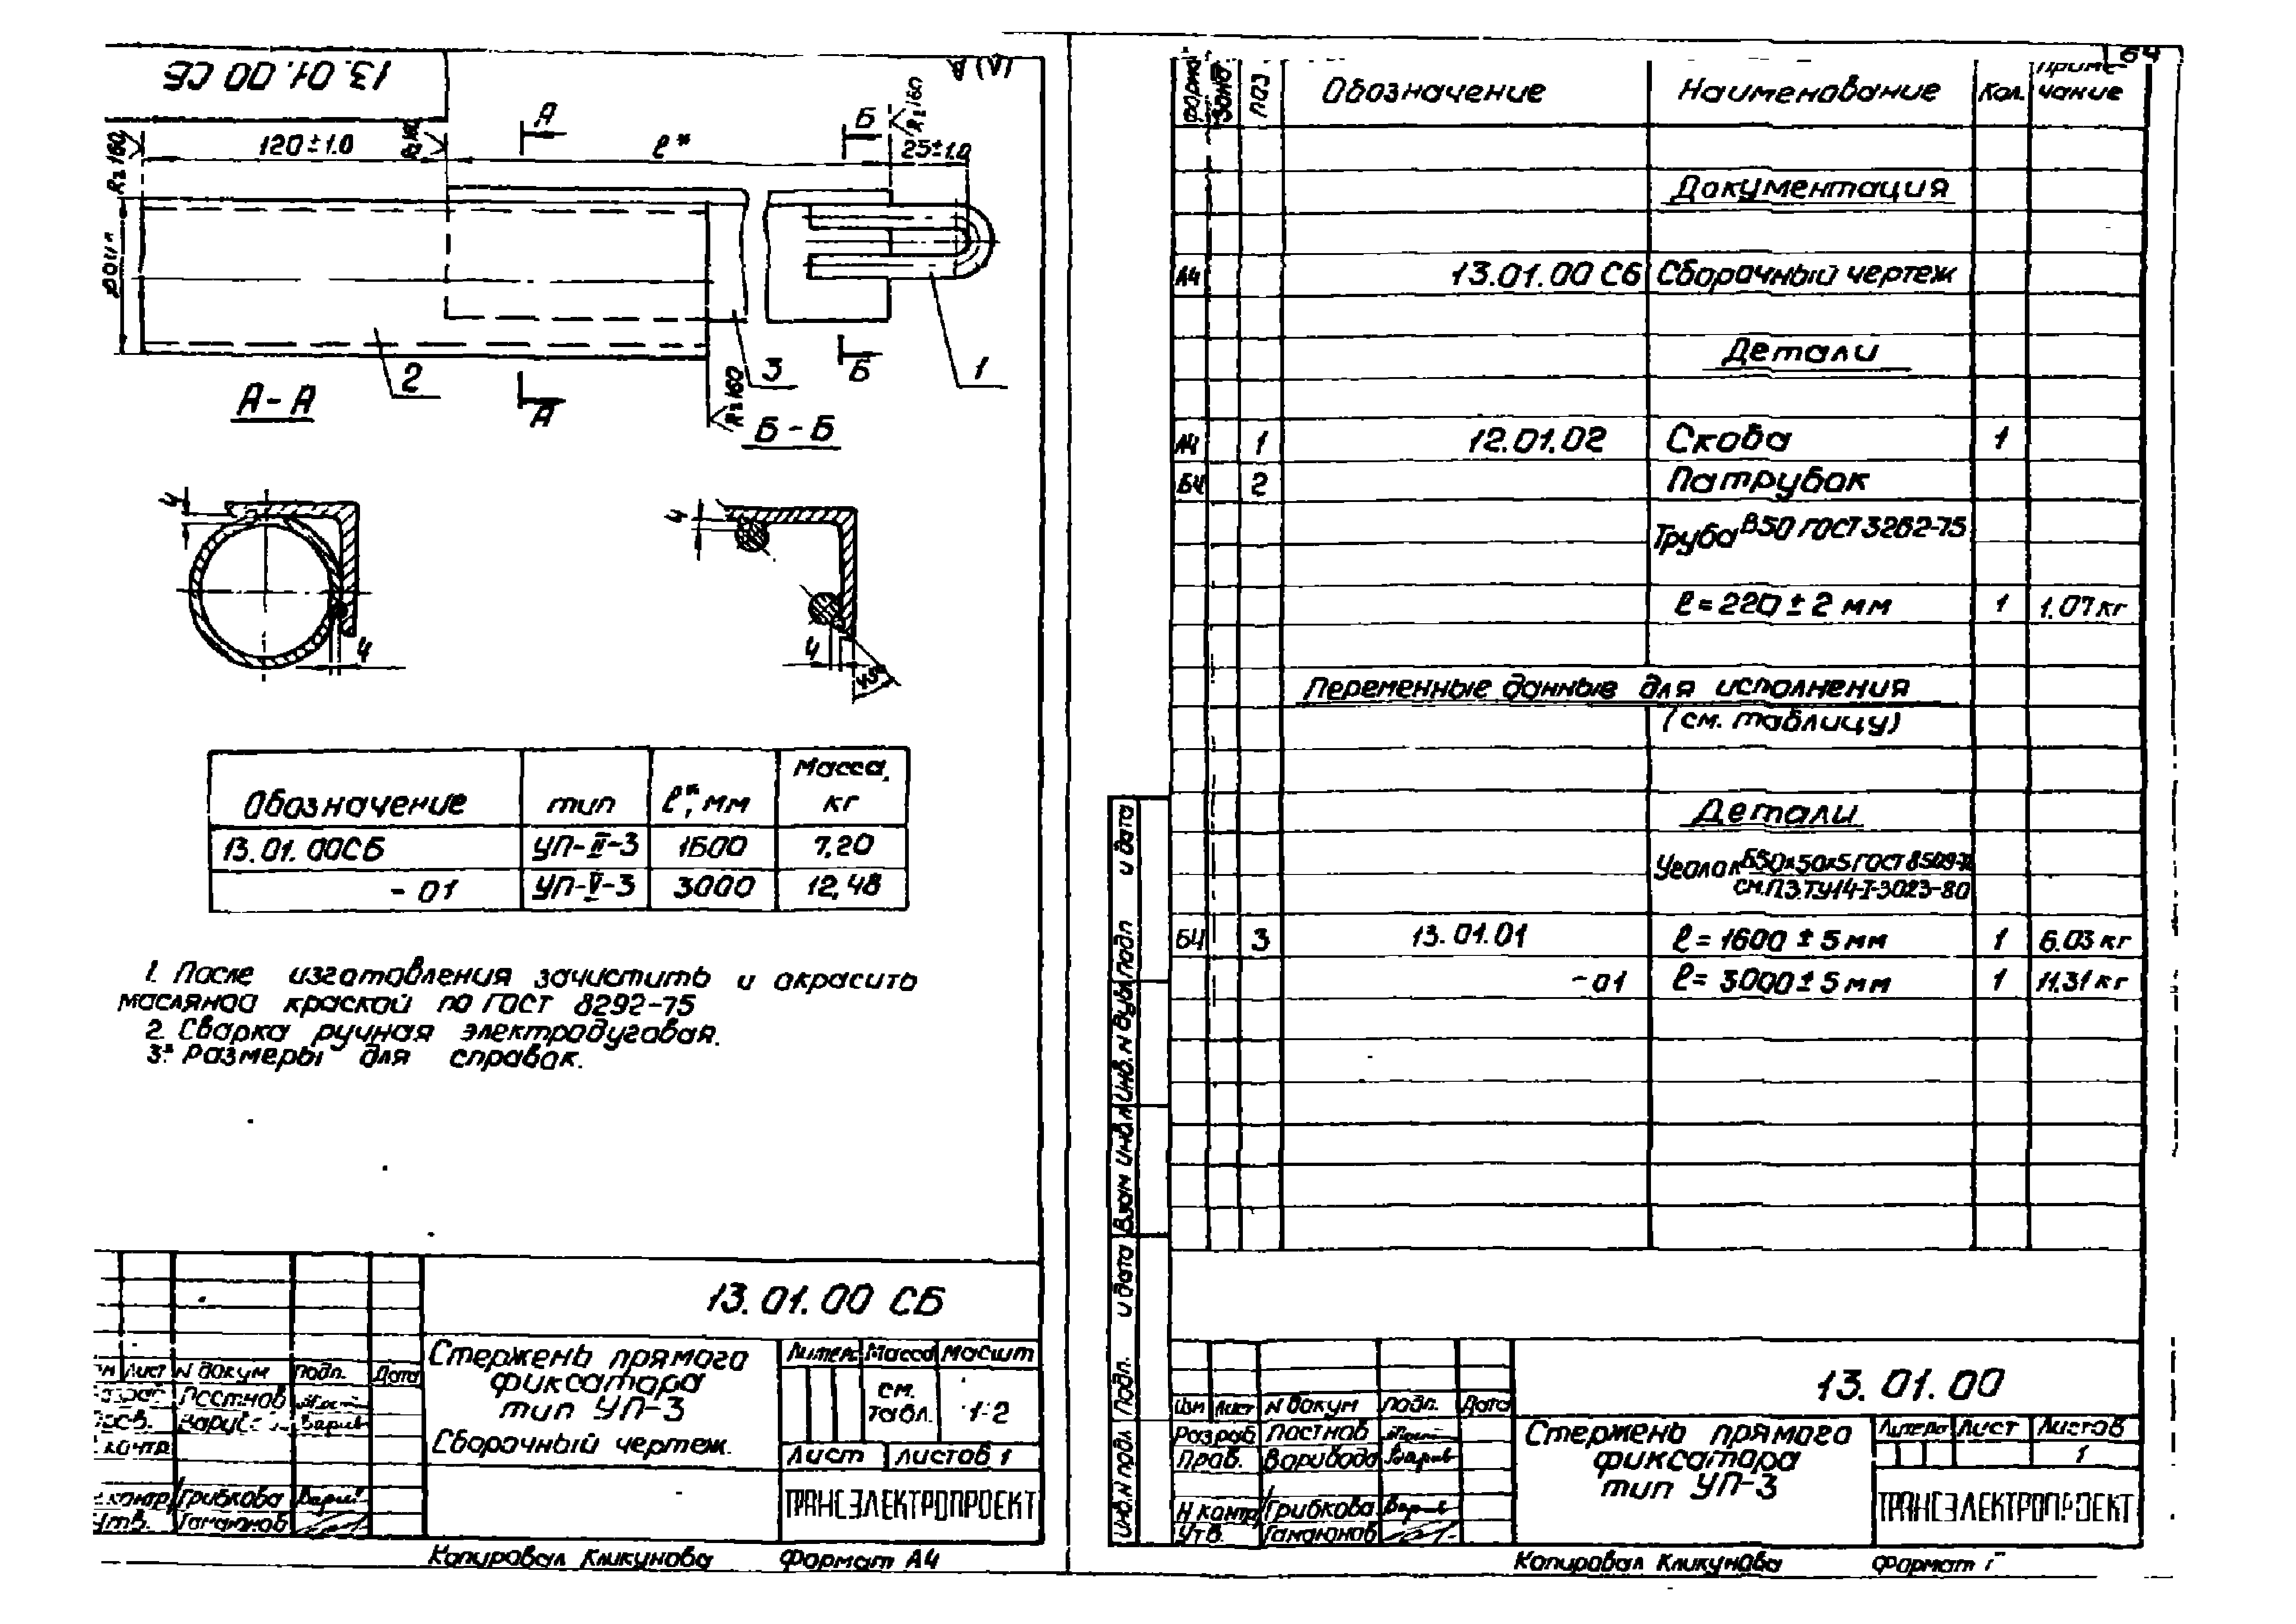 13.01.00 СБ
120±1.0
ℓ*
25±1.0
Rz160
Rz160
Rz160
Rz160
А
Б
А
Б
1
2
3
А-А
Б-Б
4
4
4
4
45°
Обозначение тип ℓ*, мм Масса, кг
13.01.00СБ УП-II-3 1600 7,20
-01 УП-V-3 3000 12,48
1. После изготовления зачистить и окрасить
масляной краской по ГОСТ 8292-75
2. Сварка ручная электродуговая.
3.* Размеры для справок.
13.01.00 СБ
Стержень прямого
фиксатора
тип УП-3
Сборочный чертеж.
Литера Масса Масшт
см. табл. 1:2
Лист Листов 1
ТРАНСЭЛЕКТРОПРОЕКТ
Лист N докум подп. Дата
Постнов
контр
Н контр Грибкова
Утв. Гамаюнов
Копировал Кликунова Формат А4
64
Формат Зона Поз Обозначение Наименование Кол. Примечание
Документация
А4 13.01.00 СБ Сборочный чертеж
Детали
А4 1 12.01.02 Скоба 1
БЧ 2 Патрубок
Труба В50 ГОСТ 3262-75
ℓ=220±2 мм 1 1.07кг
Переменные данные для исполнения
(см. таблицу)
Детали
Уголок Б50х50х5 ГОСТ 8509-72
см.П3.ТУ14-1-3023-80
БЧ 3 13.01.01 ℓ=1600±5мм 1 6.03кг
-01 ℓ=3000±5мм 1 11.31кг
Инв.N подл Подп. и дата Взам инв.N Инв.N дубл Подп и дата
13.01.00
Изм Лист N докум подп. Дата
Разраб Постнов
Пров. Воривода
Н контр Грибкова
Утв. Гамаюнов
Стержень прямого
фиксатора
тип УП-3
Литера Лист Листов
1
ТРАНСЭЛЕКТРОПРОЕКТ
Копировал Кликунова Формат